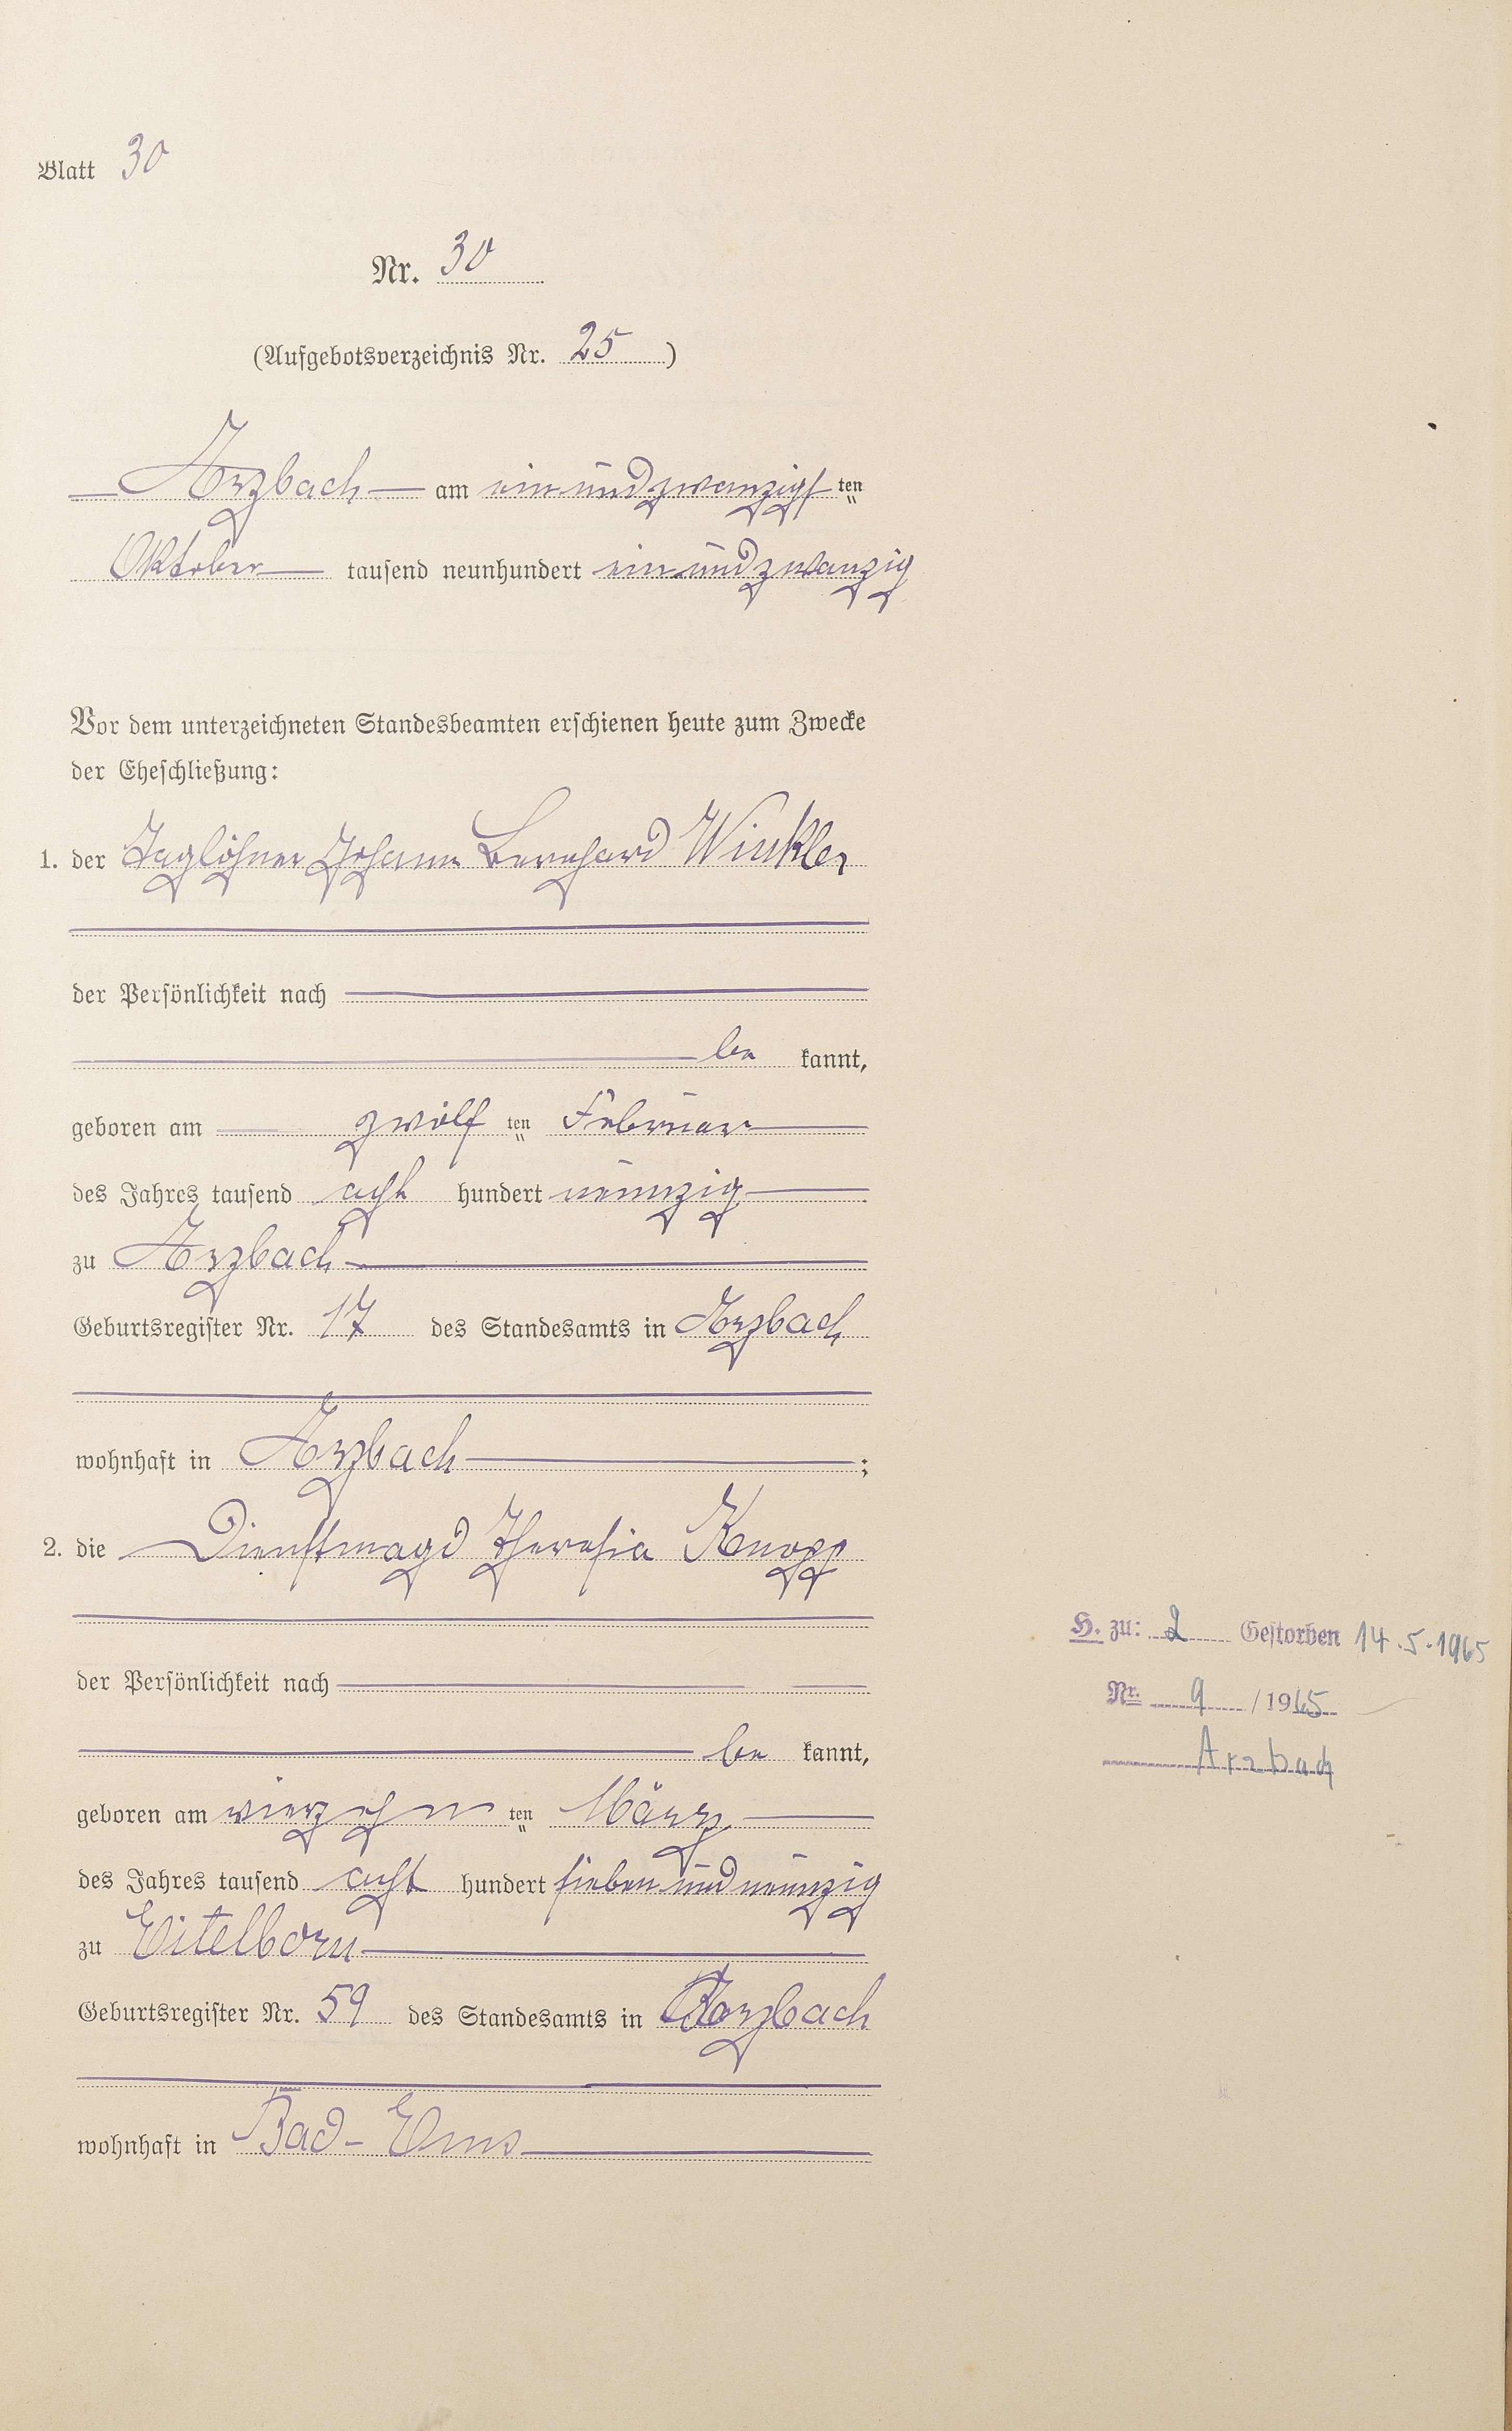 Blatt 30
Nr. 30
(Aufgebotsverzeichnis Nr. 25)
Arzbach am ein und zwanzigsten
Oktober tausend neunhundert ein und zwanzig
Vor dem unterzeichneten Standesbeamten erschienen heute zum Zwecke
der Eheschließung:
1. der Taglöhner Johann Bernhard Winkler
der Persönlichkeit nach
be kannt,
geboren am zwölf ten Februar
des Jahres tausend acht hundert neunzig
zu Arzbach
Geburtsregister Nr. 17 des Standesamts in Arzbach
wohnhaft in Arzbach;
2. die Dienstmagd Theresia Knopp
der Persönlichkeit nach
be kannt,
geboren am vierzehn ten März
des Jahres tausend acht hundert sieben und neunzig
zu Eitelborn
Geburtsregister Nr. 59 des Standesamts in Arzbach
wohnhaft in Bad-Ems
H. zu: 2 Gestorben 14.5.1965
Nr. 9 /1965
Arzbach